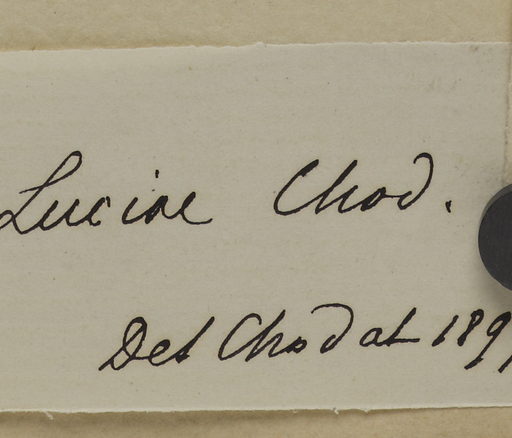 Luciae Chod.
Det Chodat 189